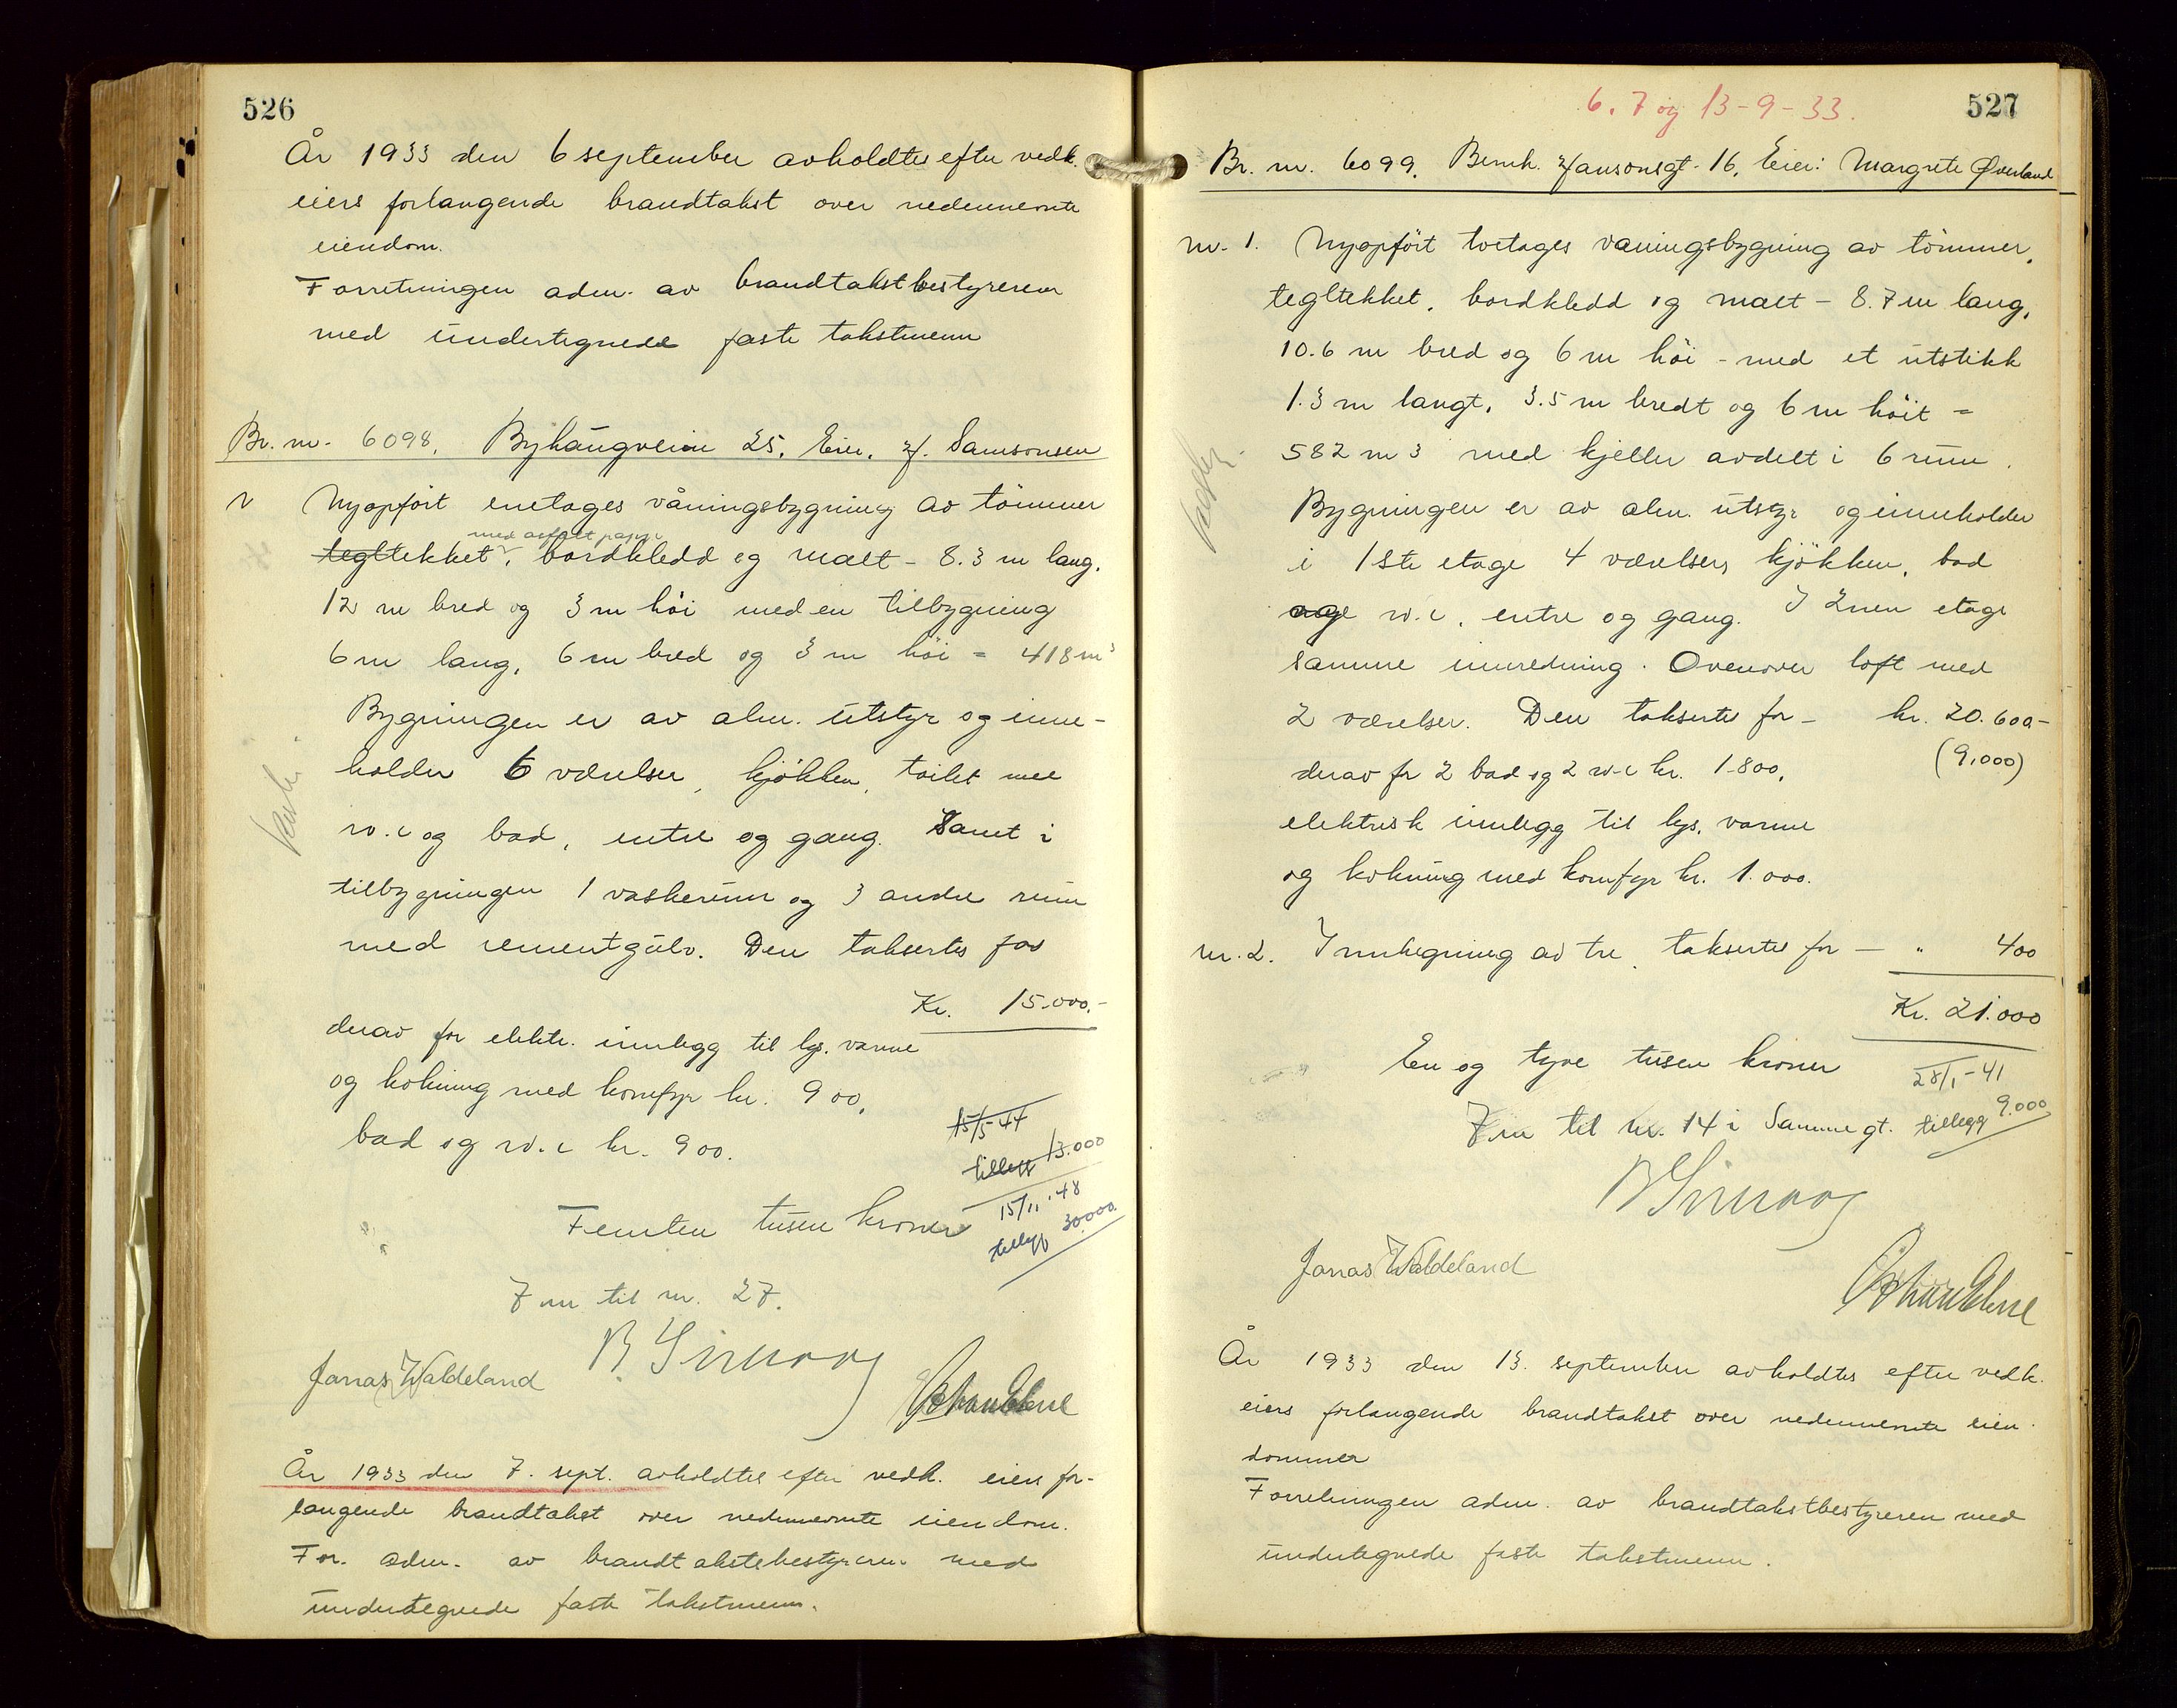 526
År 1933 den 6 september avholdtes efter vedk.
eiers forlangende brandtakst over nedennevnte
eiendom.
Forretningen adm. av brandtakstbestyreren
med undertegnede faste takstmenn
Br. nr. 6098. Byhaugveien 25. Eier. J. Samsonsen
Nyopført enetages våningsbygning av tømmer
med asfalt papp
tegltekket, bordkledd og malt - 8.3 m lang.
12 m bred og 3 m höi med en tilbygning
6 m lang, 6 m bred og 3 m höi = 418 m3
Bygningen er av alm. utstyr og inne-
holder 6 værelser, kjökken, toilet med
w.c og bad, entre og gang. Samt i
tilbygningen 1 vaskerum og 3 andre rum
med sementgulv. Den takseres for
Kr. 15.000.-
derav for elektr. innlegg til lys, varme
og kokning med komfyr kr. 900,
bad og w.c kr. 900.
15/5-44
tillegg 13.000
15/11 '48
tillegg 30000.
Femten tusen kroner
7 m til nr. 27.
Jonas Waldeland
År 1933 den 7. sept. avholdtes efter vedk. eiers for-
langende brandtakst over nedennevnte eiendom.
For. adm. av brandtakstbestyreren med
undertegnede faste takstmenn.
6. 7 og 13-9-33.
527
Br. nr. 6099. Bernh. Jansonsgt. 16. Eier: Margrete Øverland
nr. 1. Nyopfört toetages våningsbygning av tömmer,
tegltekket, bordkledd og malt - 8.7 m lang,
10.6 m bred og 6 m höi - med et utstikk
1.3 m langt, 3.5 m bredt og 6 m höit =
582 m3 med kjeller avdelt i 6 rum.
Bygningen er av alm. utstyr og inneholder
i 1ste etage 4 værelser, kjökken, bad
og w.c, entre og gang. I 2nen etage
samme innredning. Ovenover loft med
2 værelser. Den takseres for - kr. 20.600-
derav for 2 bad og 2 w.c kr. 1.800, (9.000)
elektrisk innlegg til lys, varme
og kokning med komfyr kr. 1.000.
nr. 2. Innhegning av tre, takseres for - " 400
Kr. 21.000
En og tyve tusen kroner
28/1-41
7 m til nr. 14 i Samme gt. tillegg 9.000
Jonas Waldeland
År 1933 den 13. september avholdtes efter vedk.
eiers forlangende brandtakst over nedennevnte eien-
dommer
Forretningen adm. av brandtakstbestyreren med
undertegnede faste takstmenn.